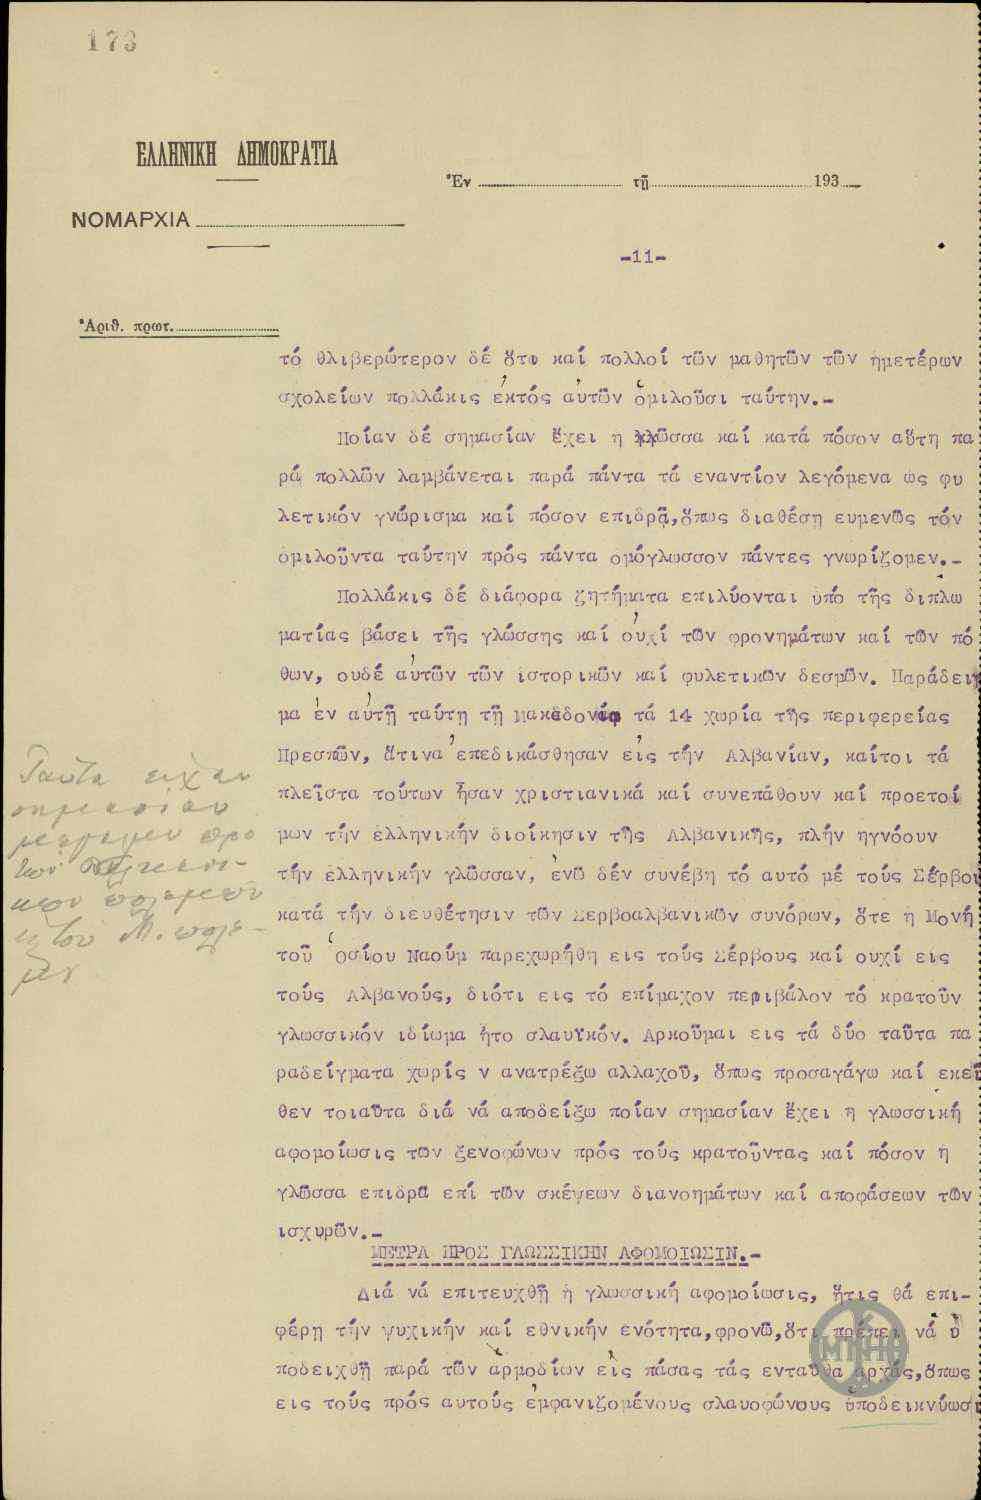 173
ΕΛΛΗΝΙΚΗ ΔΗΜΟΚΡΑΤΙΑ
Ἐν τῇ 193
ΝΟΜΑΡΧΙΑ
-11-
Ἀριθ. πρωτ.
τό θλιβερώτερον δέ ὅτι καί πολλοί τῶν μαθητῶν τῶν ἡμετέρων
σχολείων πολλάκις ἐκτός αὐτῶν ὁμιλοῦσι ταύτην.-
Ποίαν δέ σημασίαν ἔχει η γλῶσσα καί κατά πόσον αὕτη πα
ρά πολλῶν λαμβάνεται παρά πάντα τά εναντίον λεγόμενα ὡς φυ
λετικόν γνώρισμα καί πόσον επιδρᾷ,ὅπως διαθέσῃ ευμενῶς τόν
ὁμιλοῦντα ταύτην πρός πάντα ομόγλωσσον πάντες γνωρίζομεν.-
Πολλάκις δέ διάφορα ζητήματα επιλύονται ὑπό τῆς διπλω
ματίας βάσει τῆς γλώσσης καί οὐχί τῶν φρονημάτων καί τῶν πό
θων, ουδέ αὐτῶν τῶν ἱστορικῶν καί φυλετικῶν δεσμῶν. Παράδειγ
μα ἐν αὐτῇ ταύτῃ τῇ Μακεδονίᾳ τά 14 χωρία τῆς περιφερείας
Πρεσπῶν, ἅτινα ἐπεδικάσθησαν εἰς τήν Αλβανίαν, καίτοι τά
πλεῖστα τούτων ἦσαν χριστιανικά καί συνεπάθουν καί προετοί
μων τήν ἑλληνικήν διοίκησιν τῆς Αλβανικῆς, πλήν ηγνόουν
τήν ἑλληνικήν γλῶσσαν, ἐνῶ δέν συνέβη τό αυτό μέ τούς Σέρβου
κατά τήν διευθέτησιν τῶν Σερβοαλβανικῶν συνόρων, ὅτε η Μονή
τοῦ Ὁσίου Ναούμ παρεχωρήθη εις τούς Σέρβους καί ουχί εις
τούς Αλβανούς, διότι εις τό επίμαχον περιβάλον τό κρατοῦν
γλωσσικόν ιδίωμα ἦτο σλαυϊκόν. Αρκοῦμαι εις τά δύο ταῦτα πα
ραδείγματα χωρίς ν ανατρέξω αλλαχοῦ, ὅπως προσαγάγω καί εκεῖ
θεν τοιαῦτα διά νά αποδείξω ποίαν σημασίαν ἔχει η γλωσσική
αφομοίωσις τῶν ξενοφώνων πρός τούς κρατοῦντας καί πόσον ἡ
γλῶσσα επιδρᾶ επί τῶν σκέψεων διανοημάτων καί αποφάσεων τῶν
ισχυρῶν.-
ΜΕΤΡΑ ΠΡΟΣ ΓΛΩΣΣΙΚΗΝ ΑΦΟΜΟΙΩΣΙΝ.-
Διά νά επιτευχθῇ ἡ γλωσσική αφομοίωσις, ἥτις θά επι-
φέρῃ τήν ψυχικήν καί εθνικήν ενότητα,φρονῶ,ὅτι πρέπει νά ὑ
ποδειχθῇ παρά τῶν αρμοδίων εἰς πάσας τάς ενταῦθα αρχάς,ὅπως
εις τούς πρός αυτούς ἐμφανιζομένους σλαυοφώνους ὑποδεικνύωσι
Ταῦτα εἶχαν
σημασίαν
προ
πολέμων
Μ. πολέ-
μου
ΜΚΗΘ